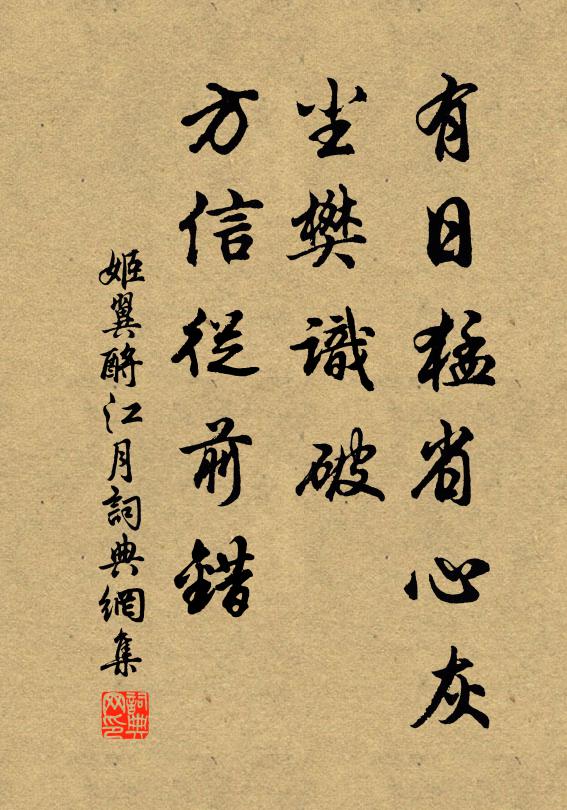 有日猛省心灰
尘樊識破
方信從前錯
姬翼酹江月詞典網集
詞典网印